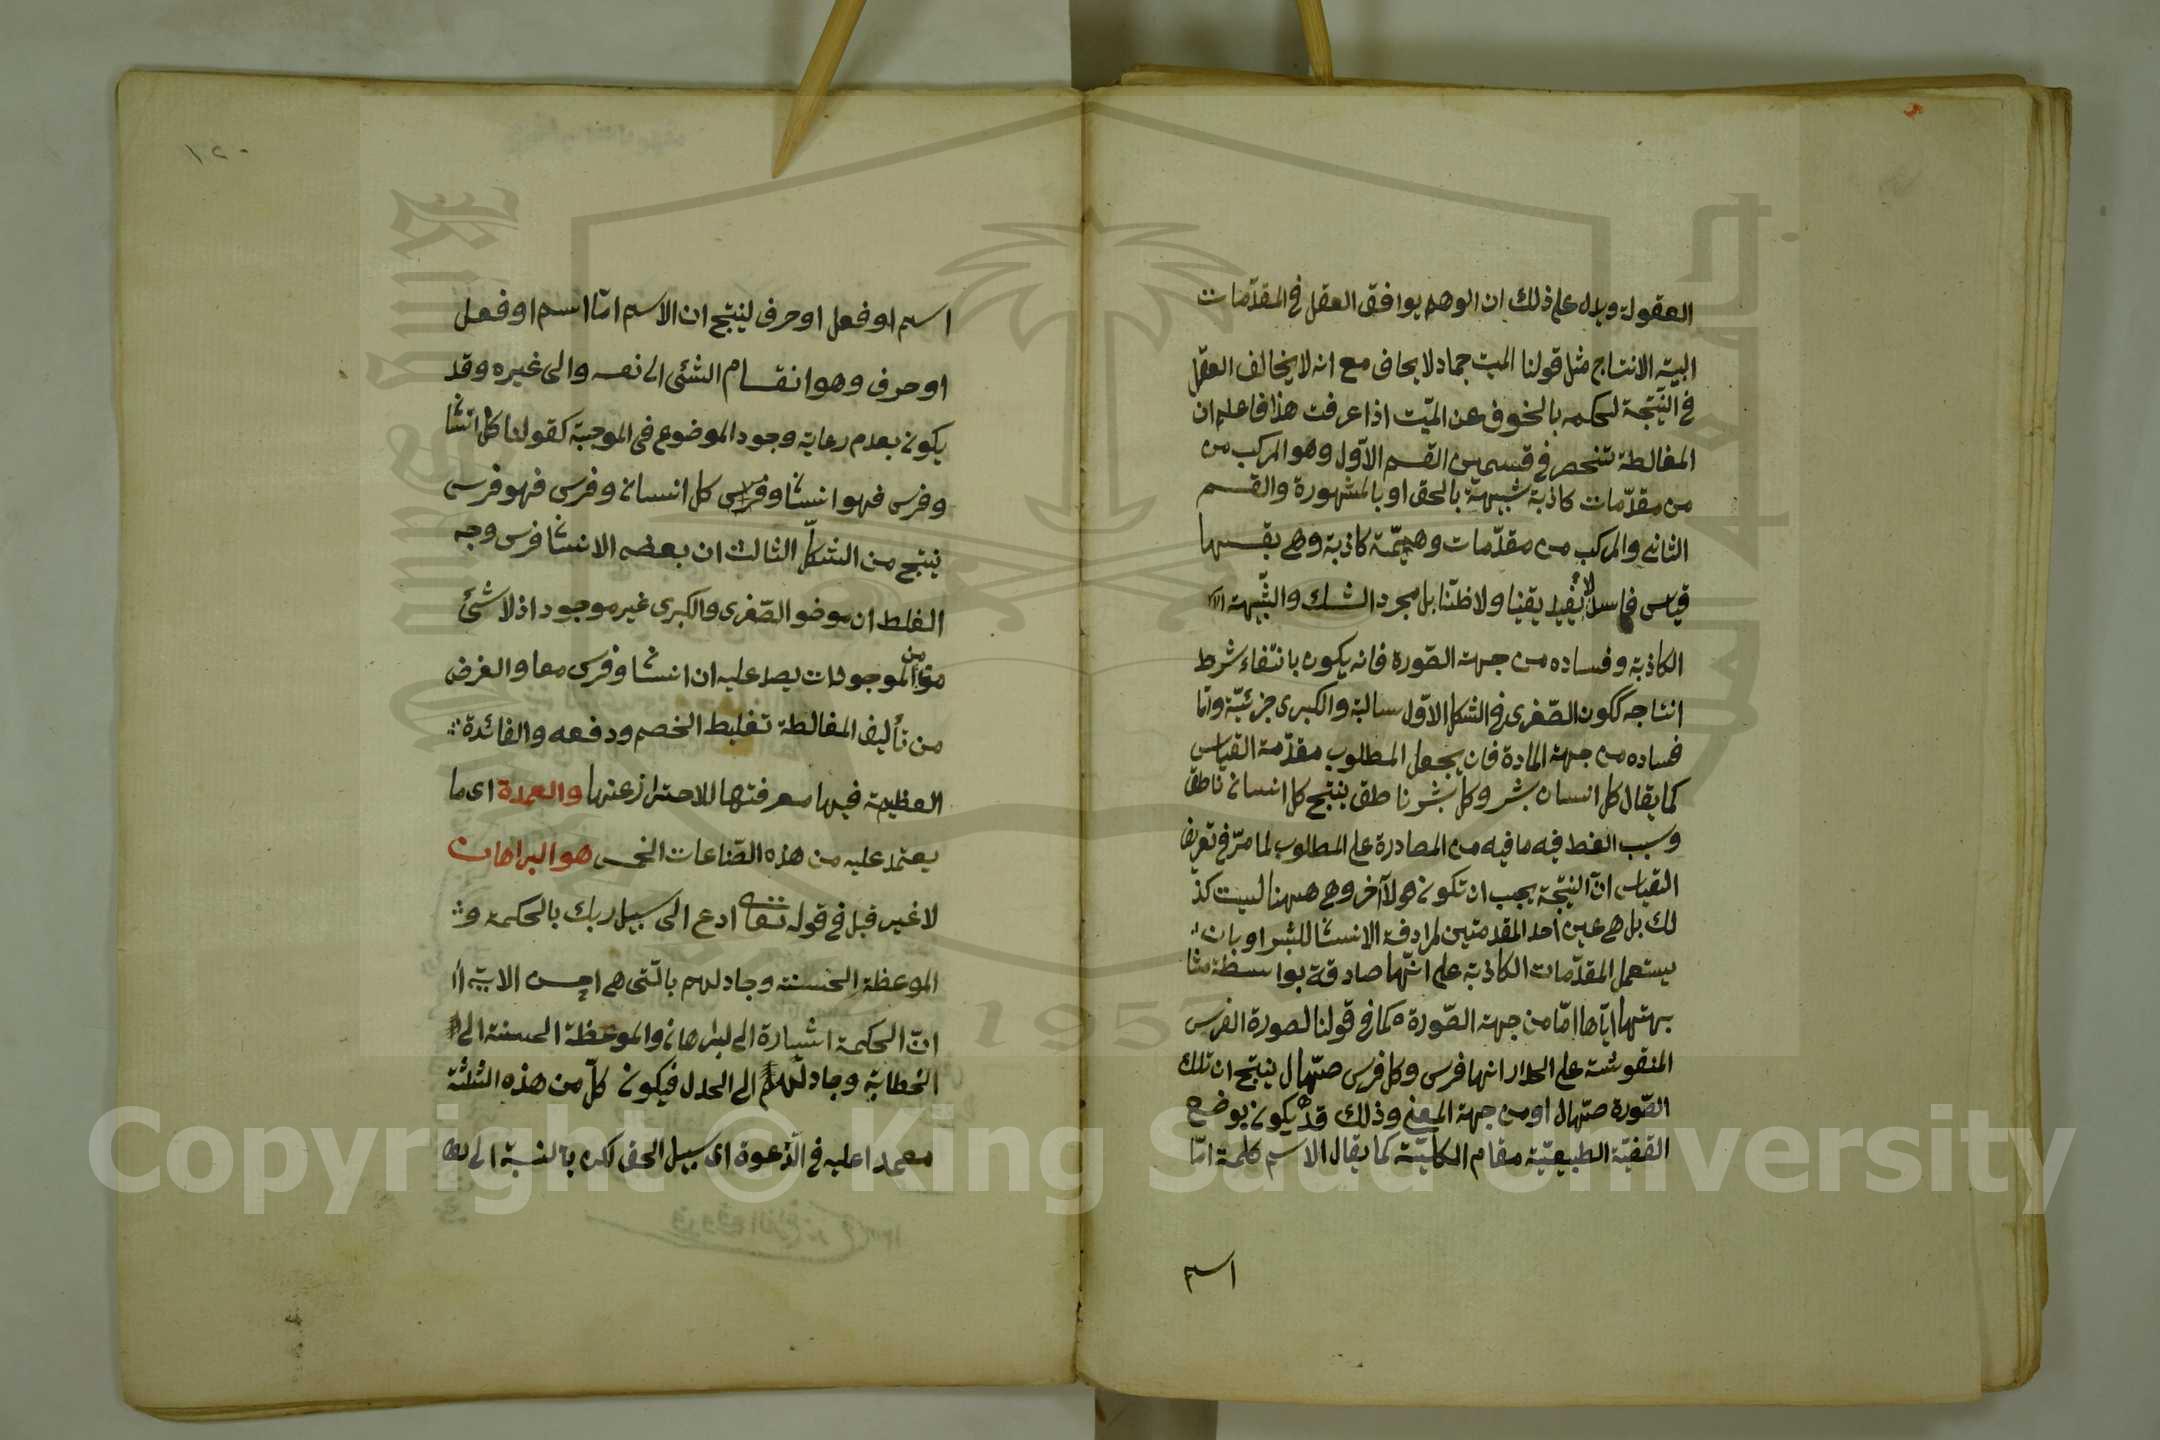 العقولة ويدل على ذلك ان الوهم يوافق العقل في المقدّمات
البيّة الانتاج مثل قولنا الميت جماد لا يخاف مع انه لا يخالف العقل
في النتيجة لحكمه بالخوف عن الميّت اذا عرفت هذا فاعلم ان
المغالطة تنحصر في قسمين القسم الاوّل وهو المركب من
من مقدّمات كاذبة شبيهة بالحق او بالمشهورة والقسم
الثاني والمركب من مقدّمات وهميّة كاذبة وهي بقسيها
قياس فاسد لا يفيد يقينا ولا ظنّنا بل مجرد الشك والشّبهة
الكاذبة وفساده من جهة الصّورة فانه يكون بانتفاء شرط
انتاجه ككون الصّغرى في الشكل الاوّل سالبة والكبرى جزئيّة وامّا
فساده من جهة المادة فان يجعل المطلوب مقدّمة القياس
كما يقال كل انسان بشر وكل بشر ناطق ينتج كل انسان ناطق
وسبب الغط فيه ما فيه من المصادرة على المطلوب لما مرّ في تعريف
القياس انّ النتيجة يجب ان تكون قولا آخر وهي ههنا ليست كذ
لك بل هي عين احد المقدمتين لمرادفة الانسا للبشر او بان
يستعمل المقدّمات الكاذبة على انّها صادقة بواسطة مشا
بهتها ايّاها امّا من جهة الصّورة كما في قولنا لصورة الفرس
المنقوشة على الجدار انها فرس وكل فرس صهّال ينتج ان تلك
الصّورة صهّال او من جهة المعنى وذلك قد يكون بوضع
القضيّة الطبيعيّة مقام الكليّة كما يقال الاسم كلمة امّا
اسم
١٢٠
اسم او فعل او حرف لينتج ان الاسم امّا اسم او فعل
او حرف وهو انقسام الشئ الى نفسه والى غيره وقد
يكون بعدم رعاية وجود الموضوع في الموجبة كقولنا كل انسا
وفرس فهو انسا وفرس كل انسان وفرس فهو فرس
ينتج من الشكل الثالث ان بعض الانسا فرس وجه
الغلط ان موضو الصّغرى والكبرى غير موجود اذ لا شئ
من الموجودات يصد عليه ان انسا وفرس معا والغرض
من تأليف المغالطة تغليط الخصم ودفعه والفائدة
العظيمة فيها معرفتها للاحتراز عنها والعمدة اى ما
يعتمد عليه من هذه الصّناعات الخمس هو البراهان
لا غير قيل في قوله تعا ادع الى سبيل ربك بالحكمة و
الموعظة الحسنة وجادلهم بالّتى هي احسن الاية
انّ الحكمة اشارة الى البرهان والموعظة الحسنة الى
الخطابة وجادلهم الى الجدل فيكون كلّ من هذه الثلثة
معمدا عليه في الدّعوة اى سبيل الحق لكن بالنسبة الى